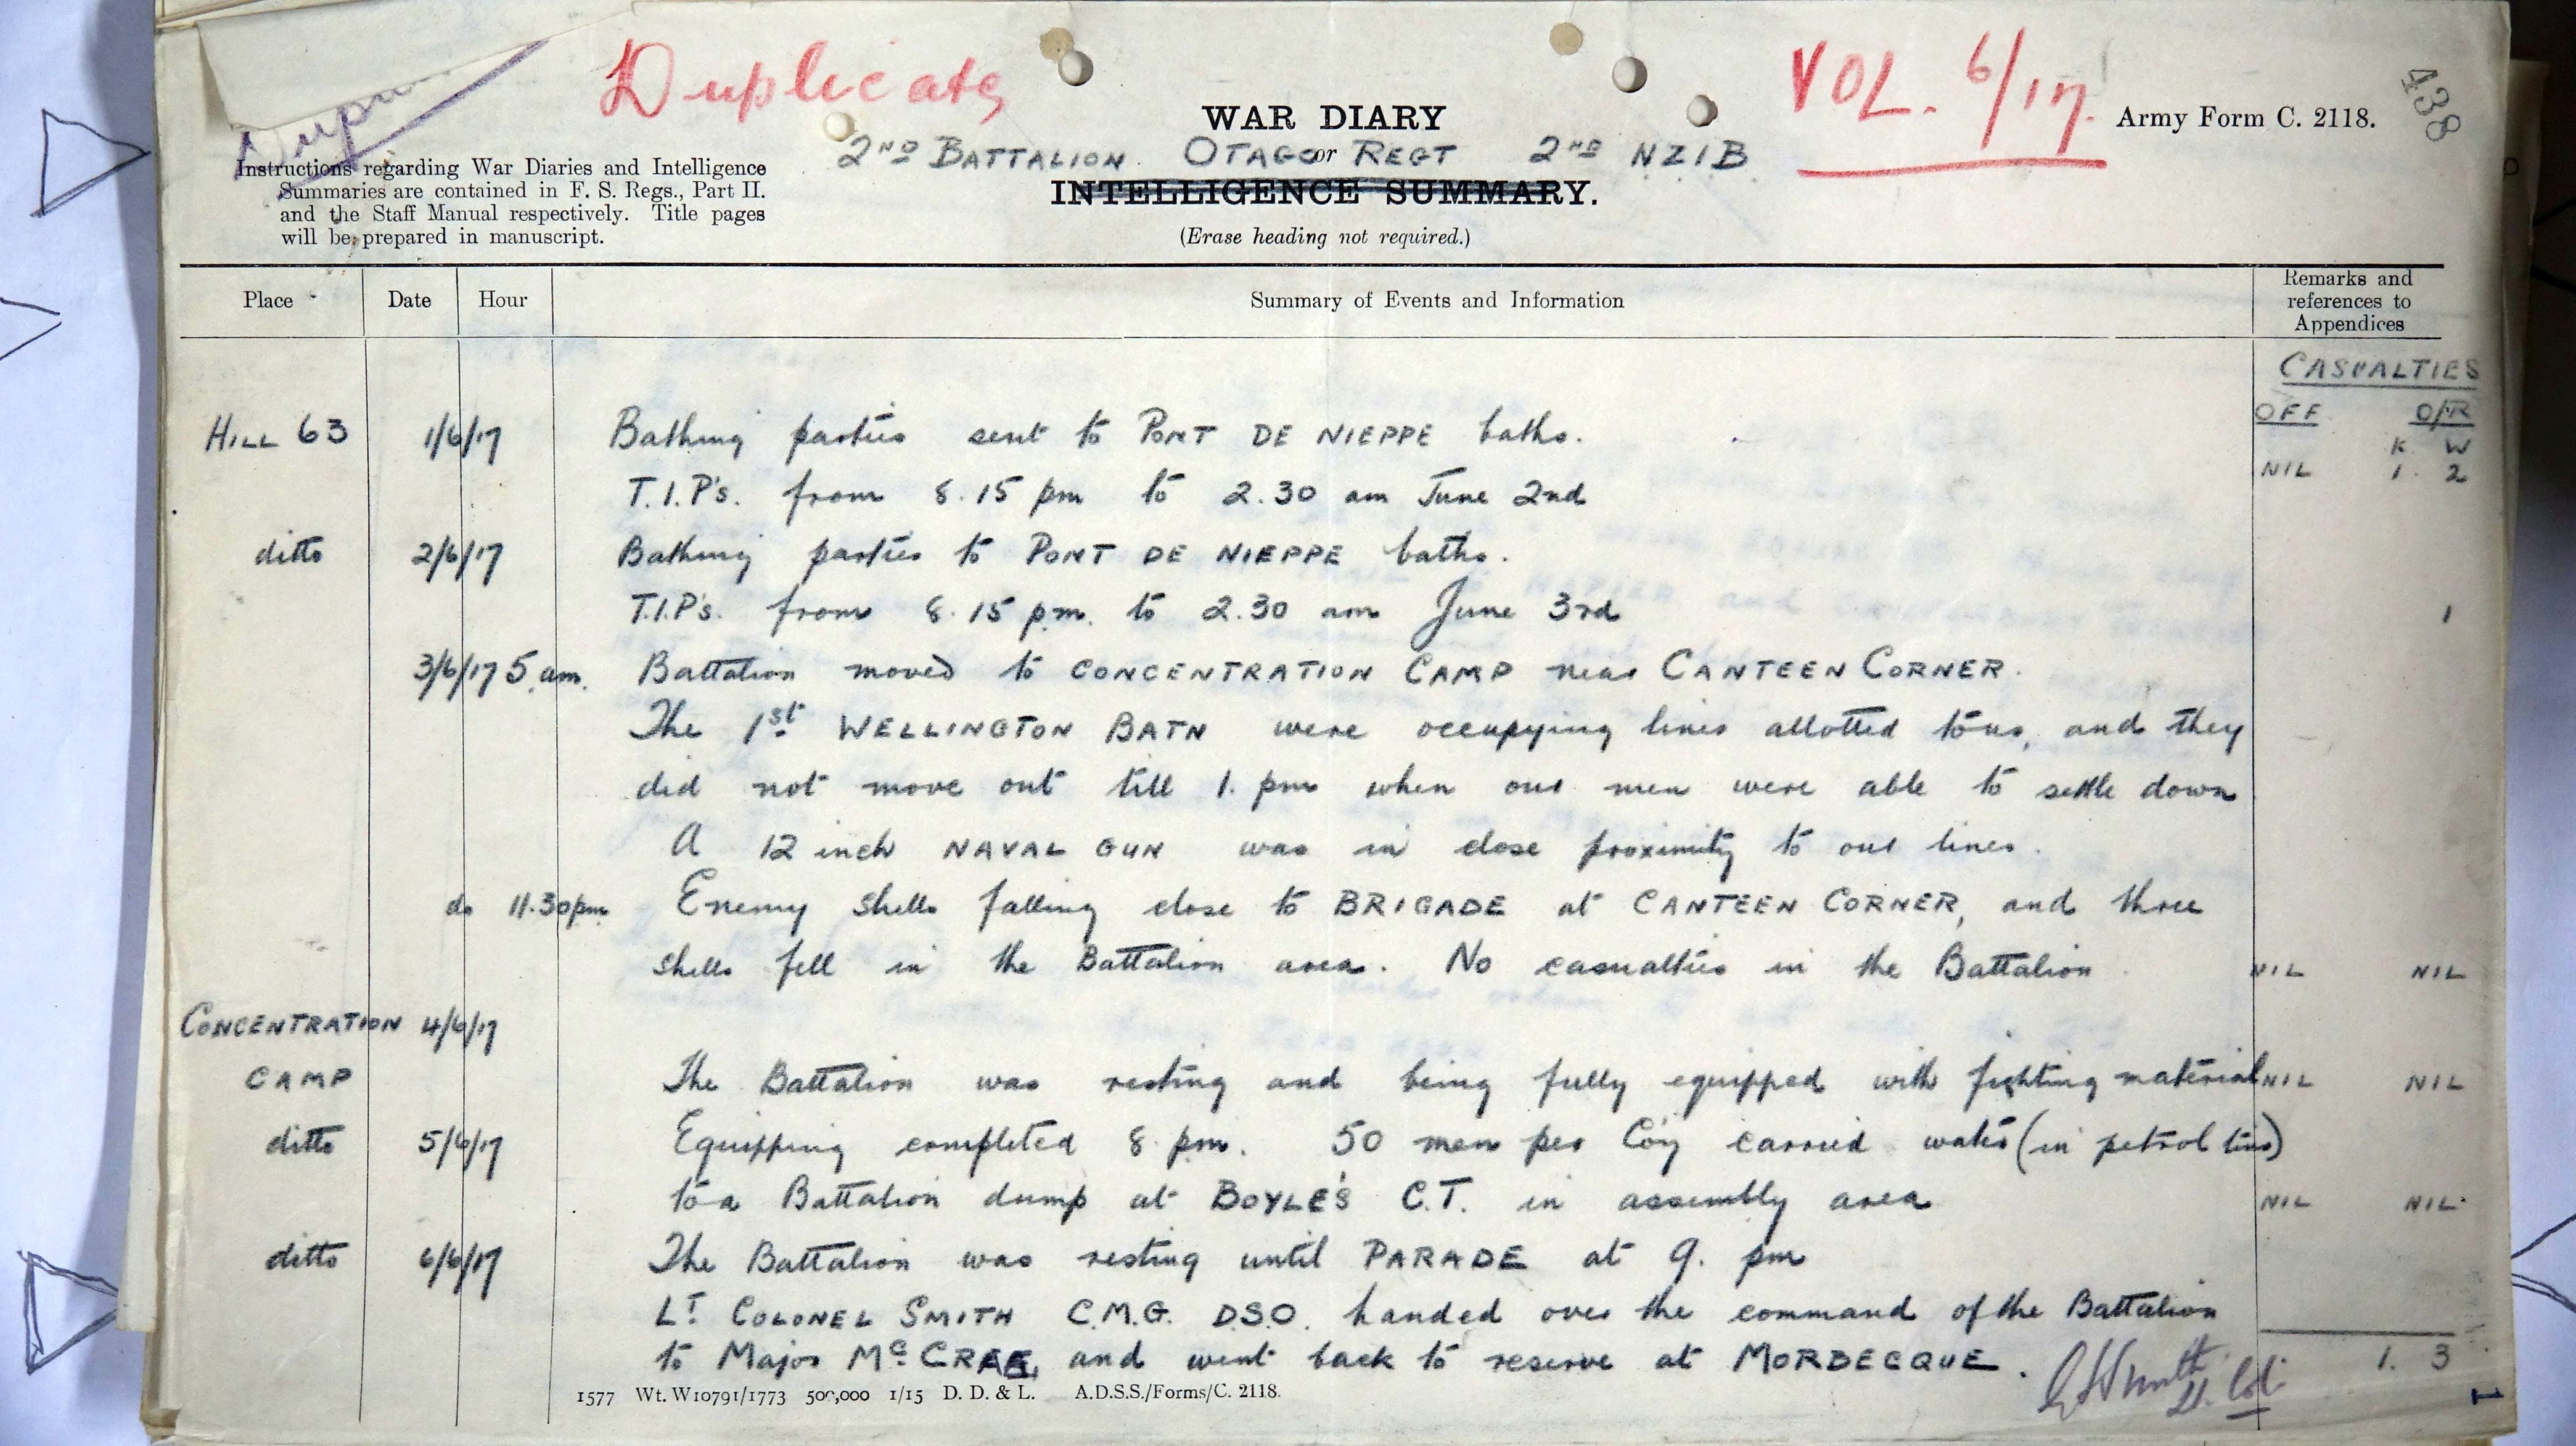 Duplicate
VOL. 6/17.
438
WAR DIARY
Army Form C. 2118.
2ND BATTALION OTAGO or REGT 2ND NZIB
Instructions regarding War Diaries and Intelligence
Summaries are contained in F. S. Regs., Part II.
and the Staff Manual respectively. Title pages
will be prepared in manuscript.
INTELLIGENCE SUMMARY.
(Erase heading not required.)
Place Date Hour Summary of Events and Information Remarks and
references to
Appendices
CASUALTIES
OFF O/R
K. W
HILL 63 1/6/17 Bathing parties sent to PONT DE NIEPPE baths.
T.I.P's. from 8.15 pm to 2.30 am June 2nd NIL 1. 2
ditto 2/6/17 Bathing parties to PONT DE NIEPPE baths.
T.I.P's. from 8.15 p.m. to 2.30 am June 3rd 1
3/6/17 5 am. Battalion moved to CONCENTRATION CAMP near CANTEEN CORNER.
The 1st WELLINGTON BATN were occupying lines allotted to us, and they
did not move out till 1. pm when our men were able to settle down
A 12 inch NAVAL GUN was in close proximity to our lines.
do 11.30pm Enemy shells falling close to BRIGADE at CANTEEN CORNER, and three
shells fell in the Battalion area. No casualties in the Battalion NIL NIL
CONCENTRATION 4/6/17
CAMP The Battalion was resting and being fully equipped with fighting material NIL NIL
ditto 5/6/17 Equipping completed 8 pm. 50 men per Coy carried water (in petrol tins)
to a Battalion dump at BOYLE'S C.T. in assembly area NIL NIL
ditto 6/6/17 The Battalion was resting until PARADE at 9. pm
LT COLONEL SMITH C.M.G. D.S.O. handed over the command of the Battalion
to Major Mc CRAE, and went back to reserve at MORBECQUE. 1. 3
Smith
Lt. Col.
1577 Wt. W10791/1773 500,000 1/15 D. D. & L. A.D.S.S./Forms/C. 2118.